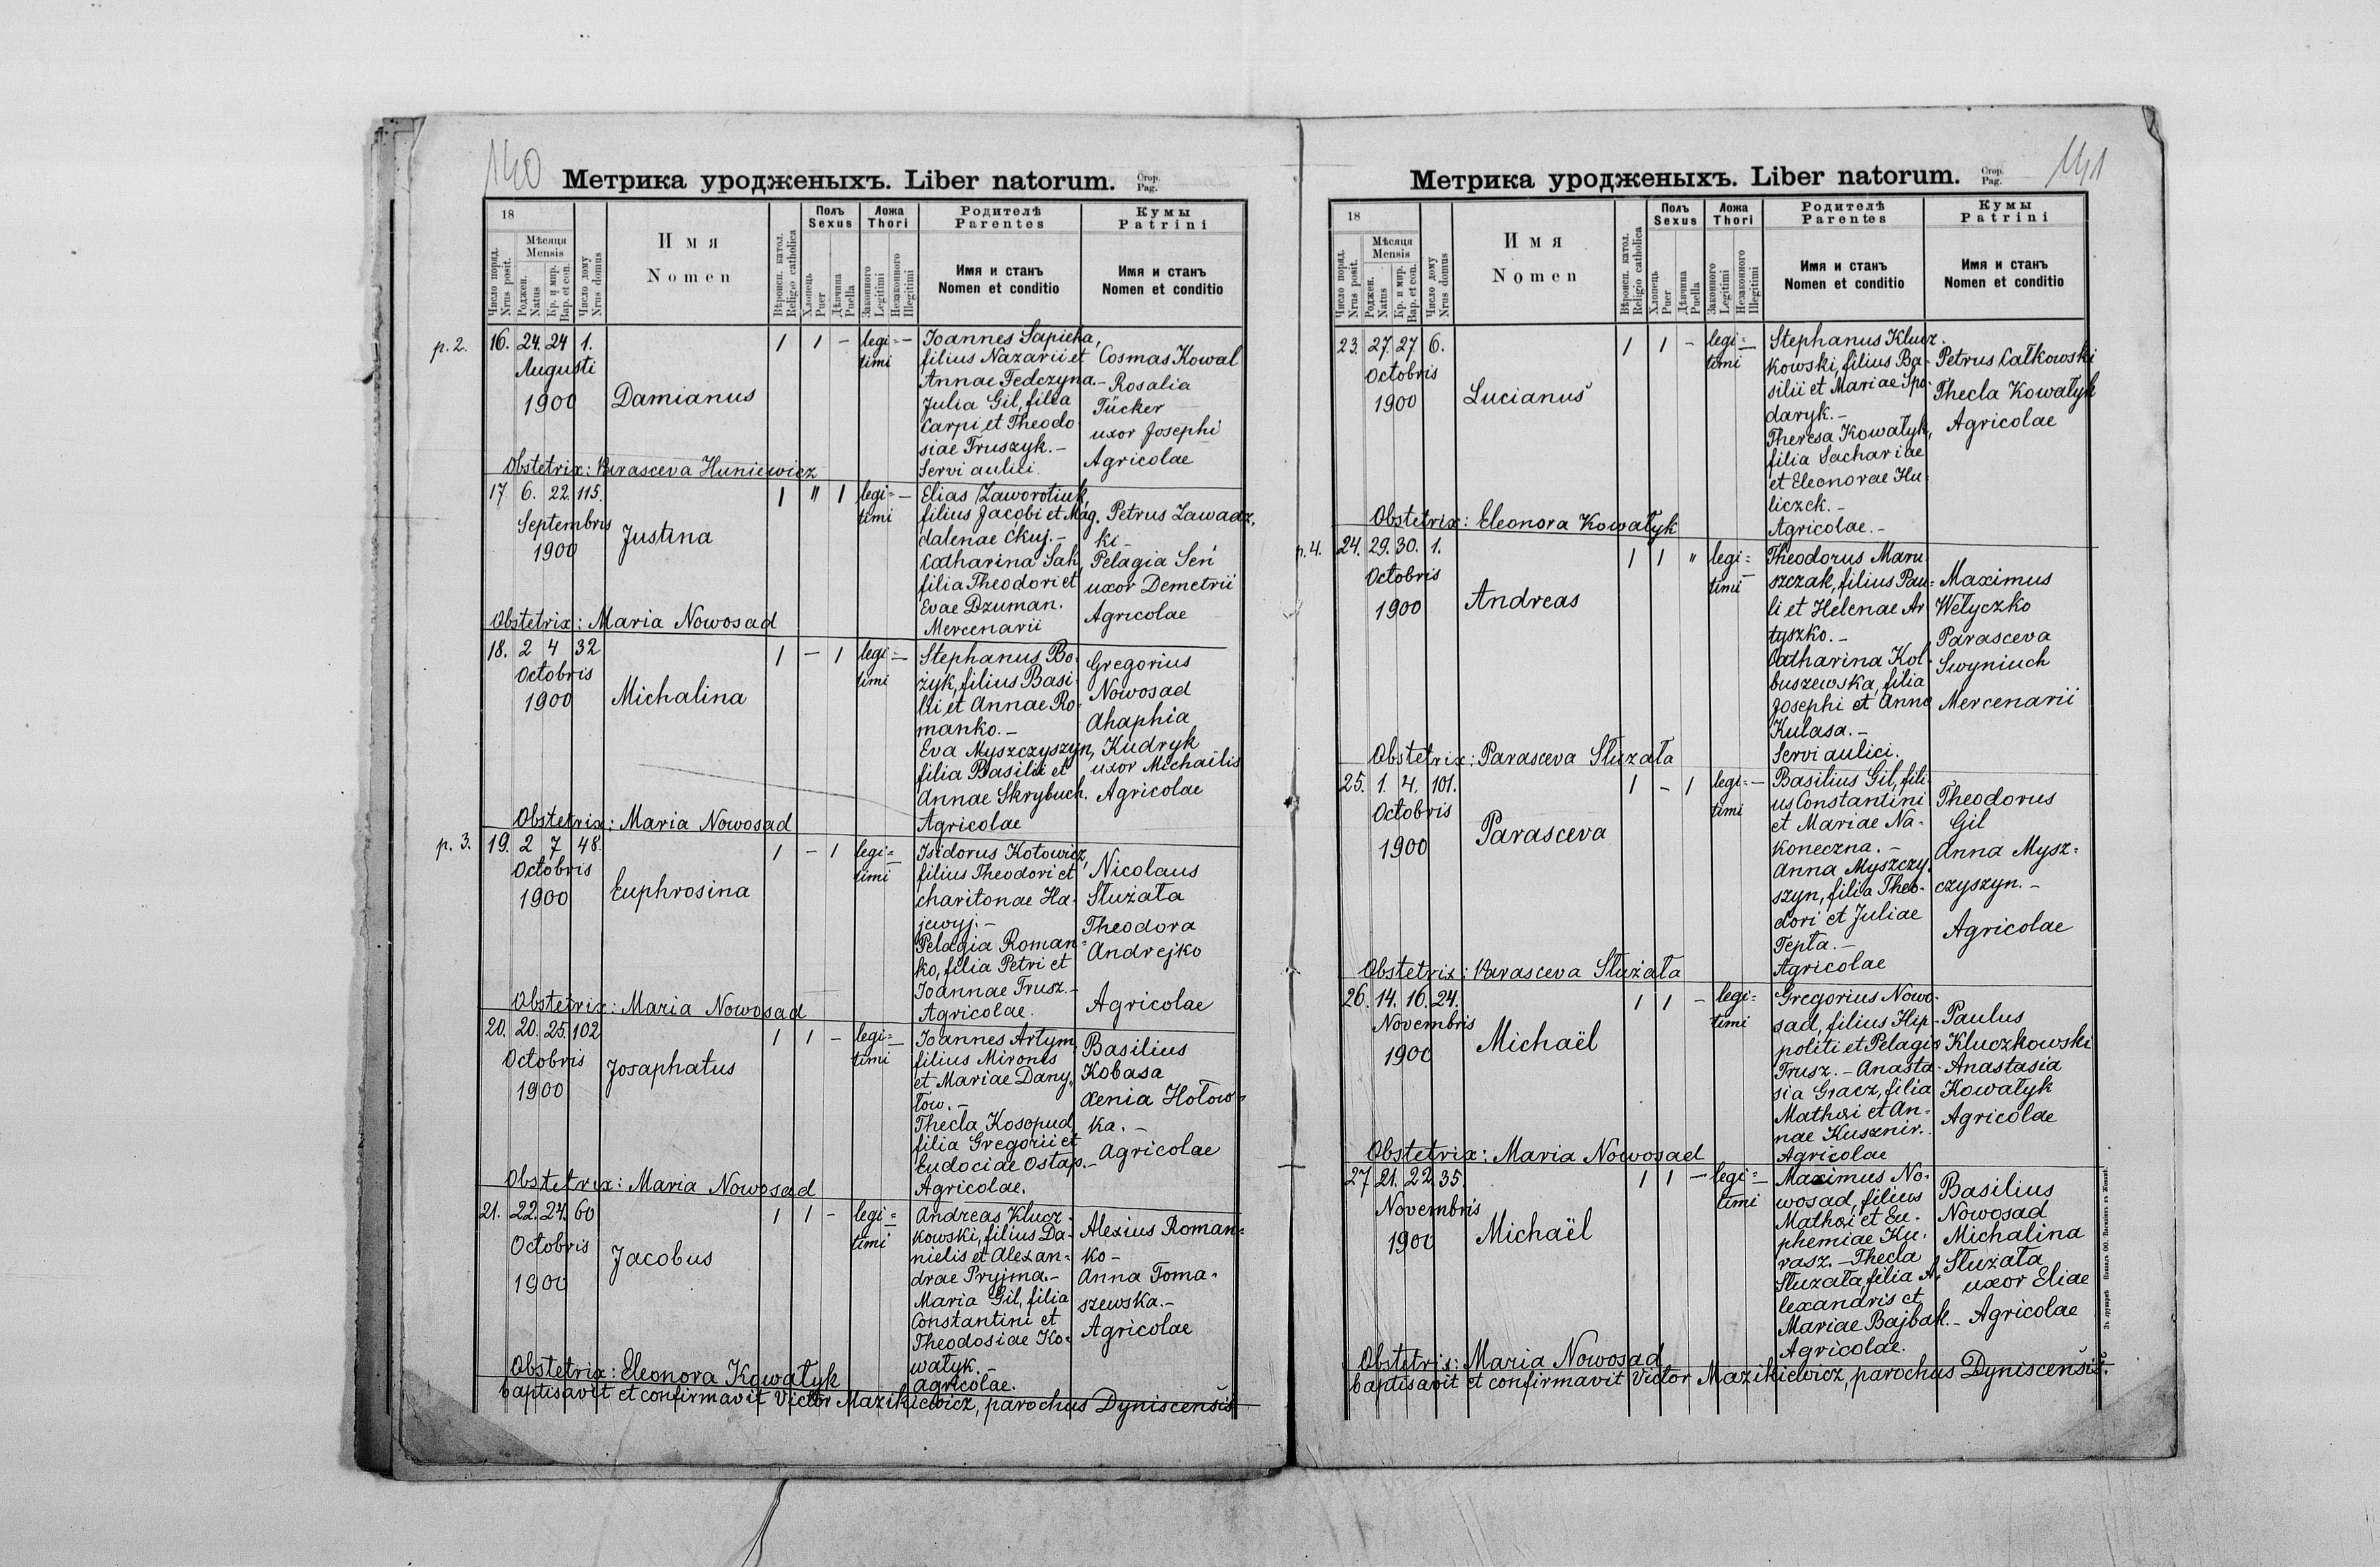 140
Метрика уродженыхъ. Liber natorum. Стор. Pag.
18
Число поряд. Nrus posit.
Мѣсяця Mensis
Роджен. Natus
Кр. и мир. Bap. et con.
Число дому Nrus domus
Имя
Nomen
Вѣроисп. катол. Religio catholica
Полъ Sexus
Хлопець Puer
Дѣвчина Puella
Ложа Thori
Законного Legitimi
Незаконного Illegitimi
Родителѣ
Parentes
Имя и станъ
Nomen et conditio
Кумы
Patrini
Имя и станъ
Nomen et conditio
p. 2.
16. 24. 24 1.
Augusti
1900
Damianus
1 1 - legi= -
timi
Joannes Sapieha,
filius Nazarii et
Annae Fedczyna.-
Julia Gil, filia
Carpi et Theodo
siae Truszyk.-
Servi aulici.
Cosmas Kowal
Rosalia
Tücker
uxor Josephi
Agricolae
Obstetrix: Parasceva Huniewicz
17 6. 22. 115.
Septembris
1900
Justina
1 " 1 legi= -
timi
Elias Zaworotiuk,
filius Jacobi et Mag.
dalenae Ckuj.-
Catharina Sak,
filia Theodori et
Evae Dzuman.
Mercenarii
Petrus Zawadz.
ki-
Pelagia Seń
uxor Demetrii
Agricolae
Obstetrix: Maria Nowosad
18. 2 4 32
Octobris
1900
Michalina
1 - 1 legi= -
timi
Stephanus Bo-
żyk, filius Basi-
lii et Annae Ro-
manko.-
Eva Myszczyszyn,
filia Basilii et
Annae Skrybuch.
Agricolae
Gregorius
Nowosad
Ahaphia
Kudryk
uxor Michaëlis
Agricolae
Obstetrix: Maria Nowosad
p. 3.
19. 2 7 48.
Octobris
1900
Euphrosina
1 - 1 legi= -
timi
Isidorus Kotowicz,
filius Theodori et
Charitonae Ha-
jewyj.-
Pelagia Roman=
ko, filia Petri et
Joannae Trusz.-
Agricolae.
Nicolaus
Służała
Theodora
Andrejko
Agricolae
Obstetrix: Maria Nowosad
20. 20. 25. 102
Octobris
1900
Josaphatus
1 1 - legi= -
timi
Joannes Artym,
filius Mironis
et Mariae Dany,
łow.-
Thecla Kosopud,
filia Gregorii et
Eudociae Ostap.-
Agricolae.
Basilius
Kobasa
Xenia Hołow=
ka.-
Agricolae
Obstetrix: Maria Nowosad
21. 22. 24. 60
Octobris
1900
Jacobus
1 1 - legi= -
timi
Andreas Klucz-
kowski, filius Da-
nielis et Alexan=
drae Pryjma.-
Maria Gil, filia
Constantini et
Theodosiae Ko=
wałyk.-
Agricolae.
Alexius Roman=
ko-
Anna Toma-
szewska.-
Agricolae
Obstetrix: Eleonora Kowałyk
baptisavit et confirmavit Victor Mazikiewicz, parochus Dyniscensis
141
Метрика уродженыхъ. Liber natorum. Стор. Pag.
18
Число поряд. Nrus posit.
Мѣсяця Mensis
Роджен. Natus
Кр. и мир. Bap. et con.
Число дому Nrus domus
Имя
Nomen
Вѣроисп. катол. Religio catholica
Полъ Sexus
Хлопець Puer
Дѣвчина Puella
Ложа Thori
Законного Legitimi
Незаконного Illegitimi
Родителѣ
Parentes
Имя и станъ
Nomen et conditio
Кумы
Patrini
Имя и станъ
Nomen et conditio
23. 27. 27 6.
Octobris
1900
Lucianus
1 1 - legi= -
timi
Stephanus Klucz-
kowski, filius Ba-
silii et Mariae Spo-
daryk.-
Theresa Kowałyk,
filia Sachariae
et Eleonorae Ku=
liczck.-
Agricolae.-
Petrus Całkowski
Thecla Kowałyk
Agricolae
Obstetrix: Eleonora Kowałyk
p. 4.
24. 29. 30. 1.
Octobris
1900
Andreas
1 1 " legi= -
timi
Theodorus Maru-
szczak, filius Pau=
li et Helenae Ar
tyszko.-
Catharina Kol-
buszewska, filia
Josephi et Annae
Kulasa.-
Servi aulici.
Maximus
Wełyczko
Parasceva
Swyniuch
Mercenarii
Obstetrix: Parasceva Służała
25. 1. 4. 101.
Octobris
1900
Parasceva
1 - 1 legi= -
timi
Basilius Gil, fili-
us Constantini
et Mariae Na-
koneczna.-
Anna Myszczy-
szyn, filia Theo-
dori et Juliae
Tepła.-
Agricolae
Theodorus
Gil
Anna Mysz=
czyszyn.-
Agricolae
Obstetrix: Parasceva Służała
26. 14. 16. 24.
Novembris
1900
Michaël
1 1 - legi=
timi
Gregorius Nowo-
sad, filius Hip-
politi et Pelagiae
Trusz.- Anasta-
sia Gracz, filia
Mathaei et An=
nae Kusznir.-
Agricolae
Paulus
Kluczkowski
Anastasia
Kowałyk
Agricolae
Obstetrix: Maria Nowosad
27 21. 22. 35.
Novembris
1900
Michaël
1 1 - legi= -
timi
Maximus No-
wosad, filius
Mathaei et Eu-
phemiae Ku-
rasz.- Thecla
Służała, filia A-
lexandris et
Mariae Bajbak.-
Agricolae.
Basilius
Nowosad
Michalina
Służała
uxor Eliae
Agricolae
Obstetrix: Maria Nowosad
baptisavit et confirmavit Victor Mazikiewicz, parochus Dyniscensis.